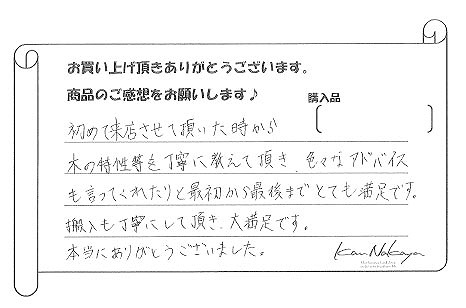 お買い上げ頂きありがとうございます。
商品のご感想をお願いします♪
購入品
初めて来店させて頂いた時から
木の特性等を丁寧に教えて頂き、色々なアドバイス
も言ってくれたりと最初から最後までとても満足です。
搬入も丁寧にして頂き、大満足です。
本当にありがとうございました。